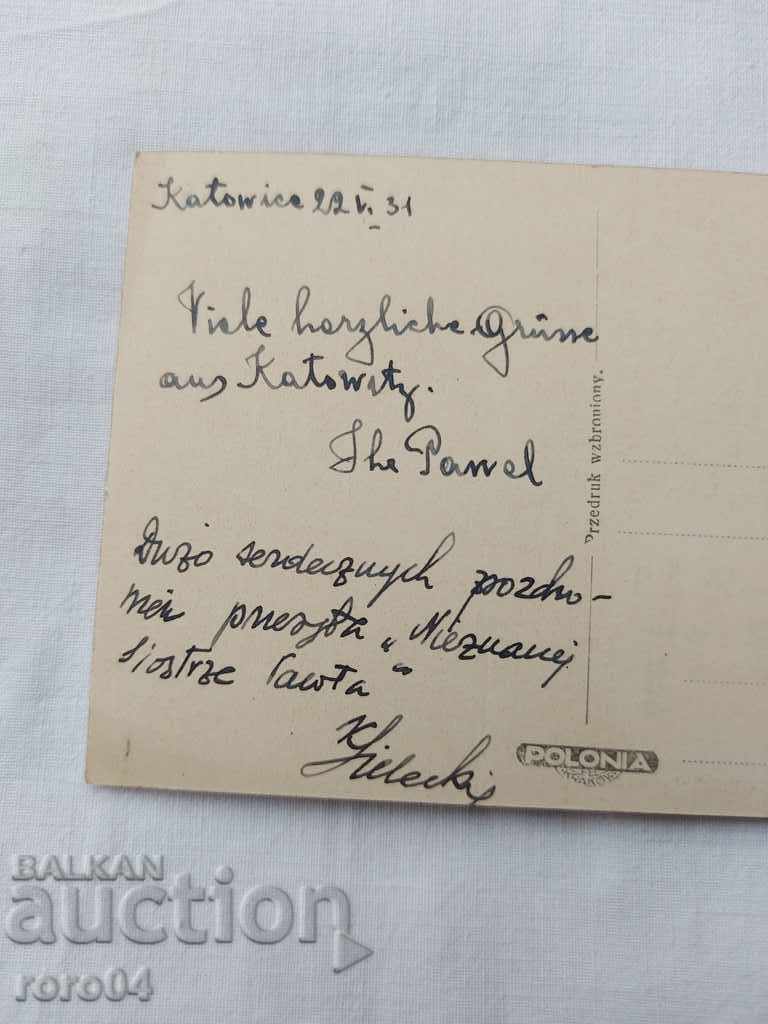 Katowice 22 V. 31
Viele herzliche Grüsse
aus Katowitz.
Ihr Pawel
Dużo serdecznych pozdro-
wień przesyła „Nieznanej
siostrze Pawła"
Przedruk wzbroniony.
POLONIA
BALKAN
auction
roro04